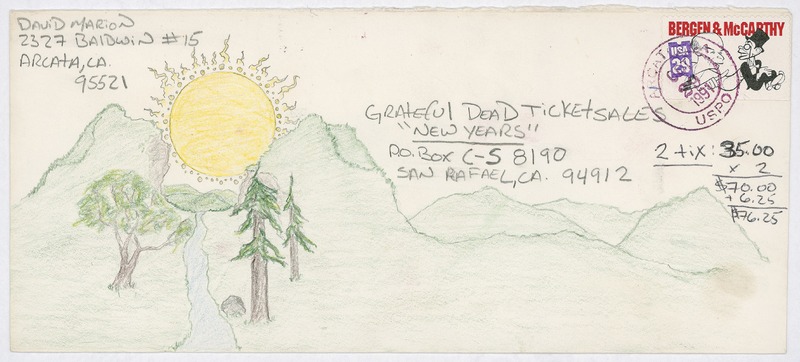 DAVID MARION
2327 BALDWIN #15
ARCATA, CA.
95521
BERGEN & McCARTHY
USA
29
ARCATA
1991
USPO
GRATEFUL DEAD TICKET SALES
"NEW YEARS"
P.O. BOX C-S 8190
SAN RAFAEL, CA. 94912
2 tix: 35.00
x 2
$70.00
+ 6.25
$76.25